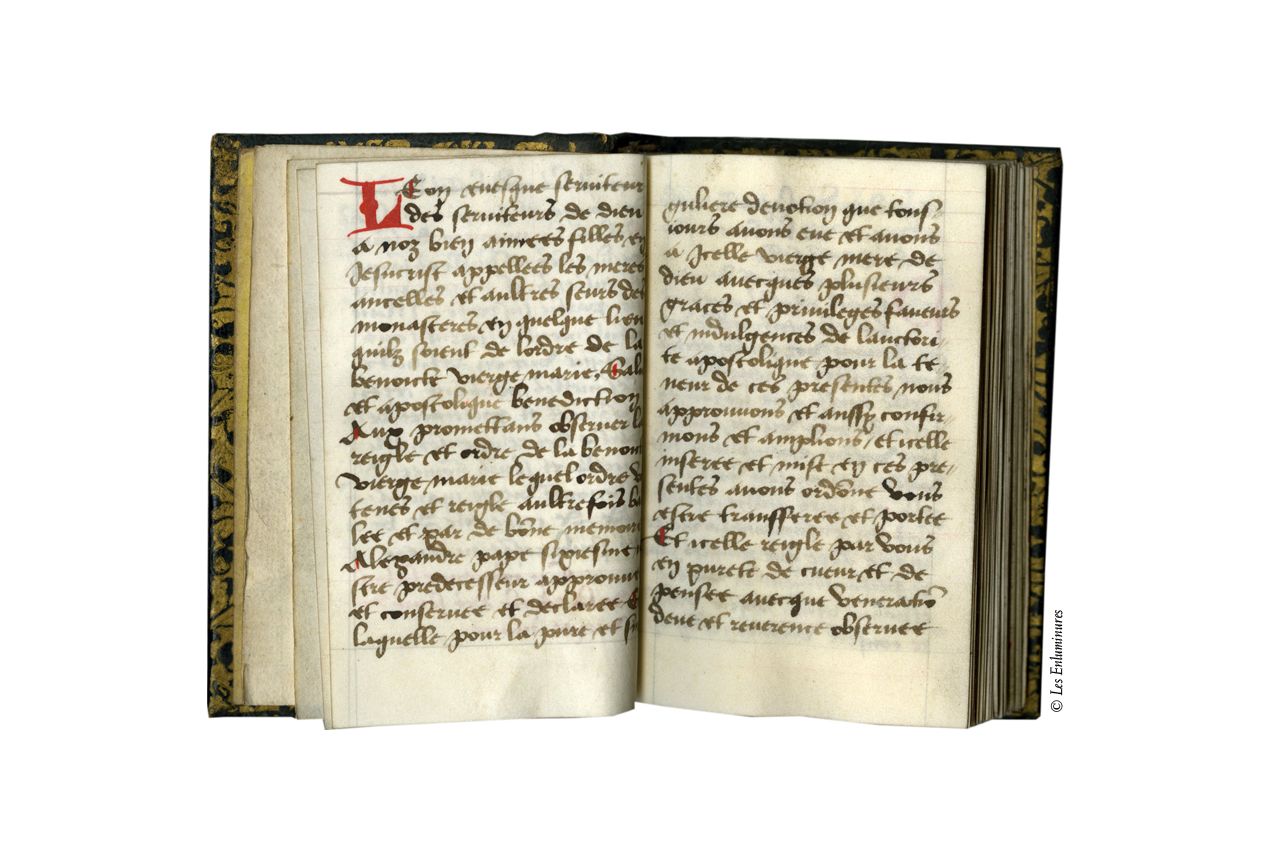 Leon euesque seruiteur
des seruiteurs de dieu
a noz bien aimees filles en
Jesucrist appellees les meres
ancelles et aultres seurs des
monasteres en quelque lieu
quilz soient de lordre de la
benoicte vierge marie, Salu
et apostolique benediction
Aux promettans obseruer la
reigle et ordre de la benoi
vierge marie lequel ordre
tenes et reigle aultrefois ba
lee et par de bōne memoire
Alexandre pape sixiesme
stre predecesseur approuue
et conseruee et declaree
laquelle pour la pure et si
guliere deuotion que tous-
iours auons eue et auons
a Icelle vierge mere de
dieu auecques plusieurs
graces et priuileges faueurs
et indulgences de lauctori-
te apostolique pour la te-
neur de ces presentes nous
approuuons et aussy confir-
mons et amplions, et icelle
inseree et mise en ces pre-
sentes auons ordōne vous
estre transferee et portee
Et icelle reigle par vous
en purete de cueur et de
pensee auecque veneratiō
deue et reuerence obseruee
© Les Enluminures